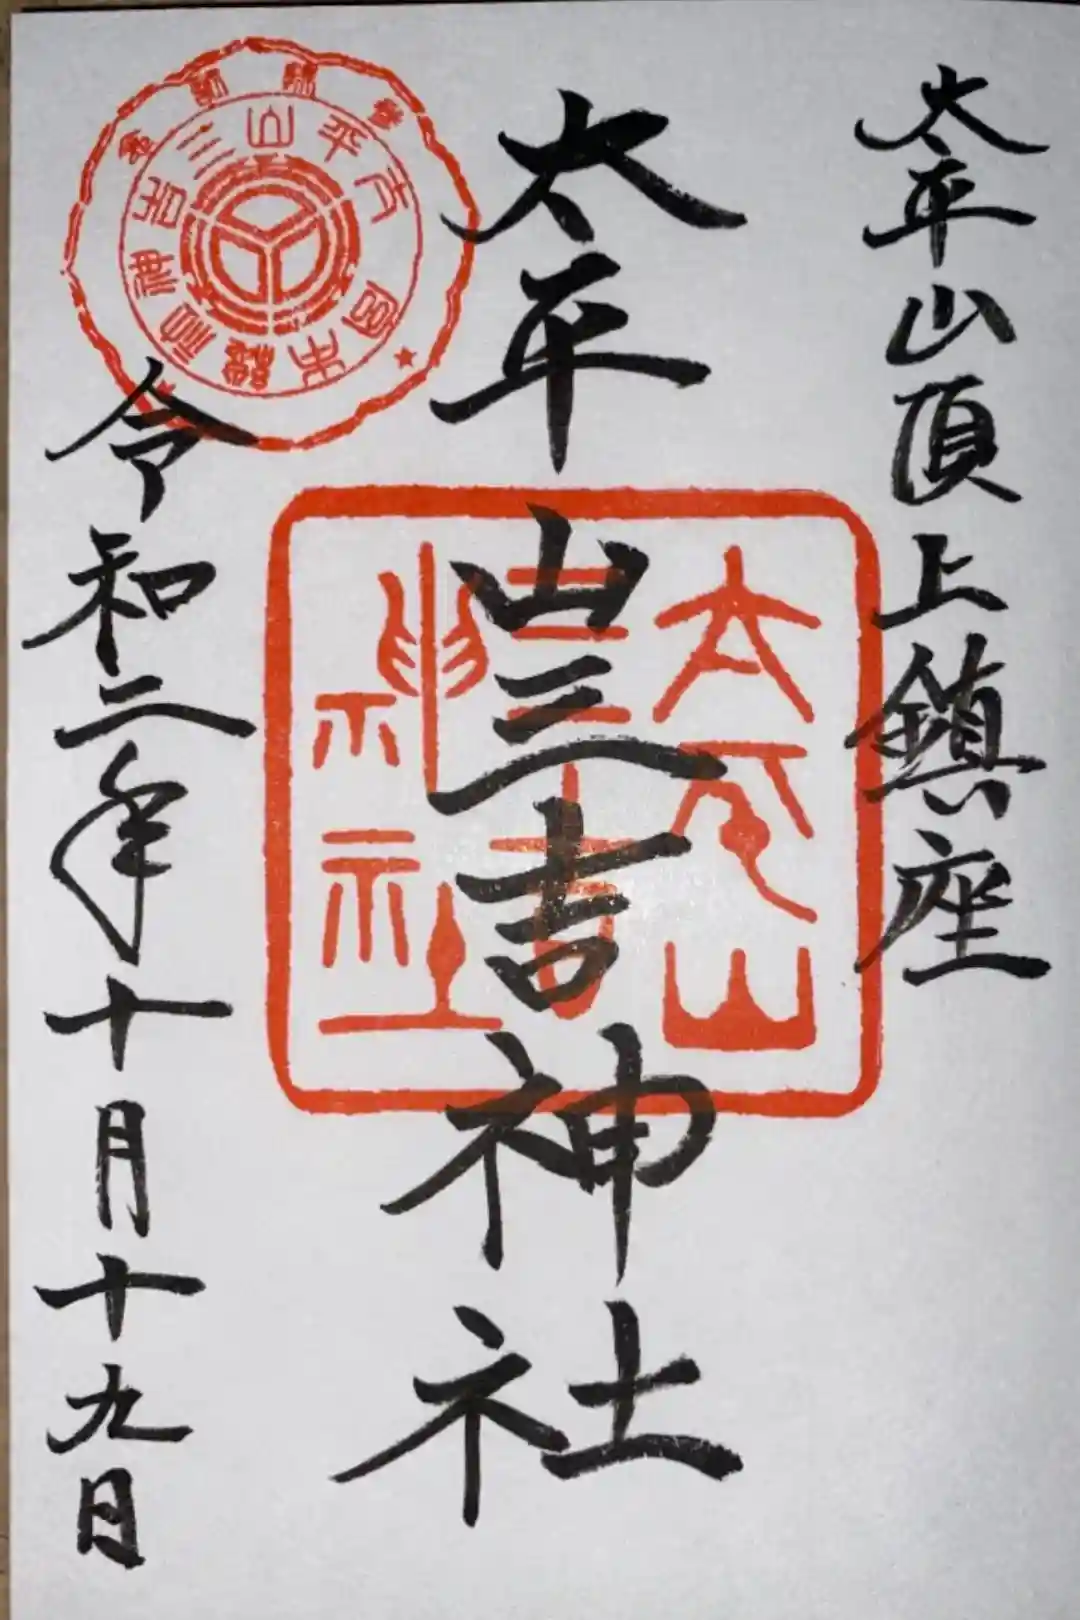 太平山頂上鎮座
太平山三吉神社
令和二年十月十九日
太平山
三吉
神社